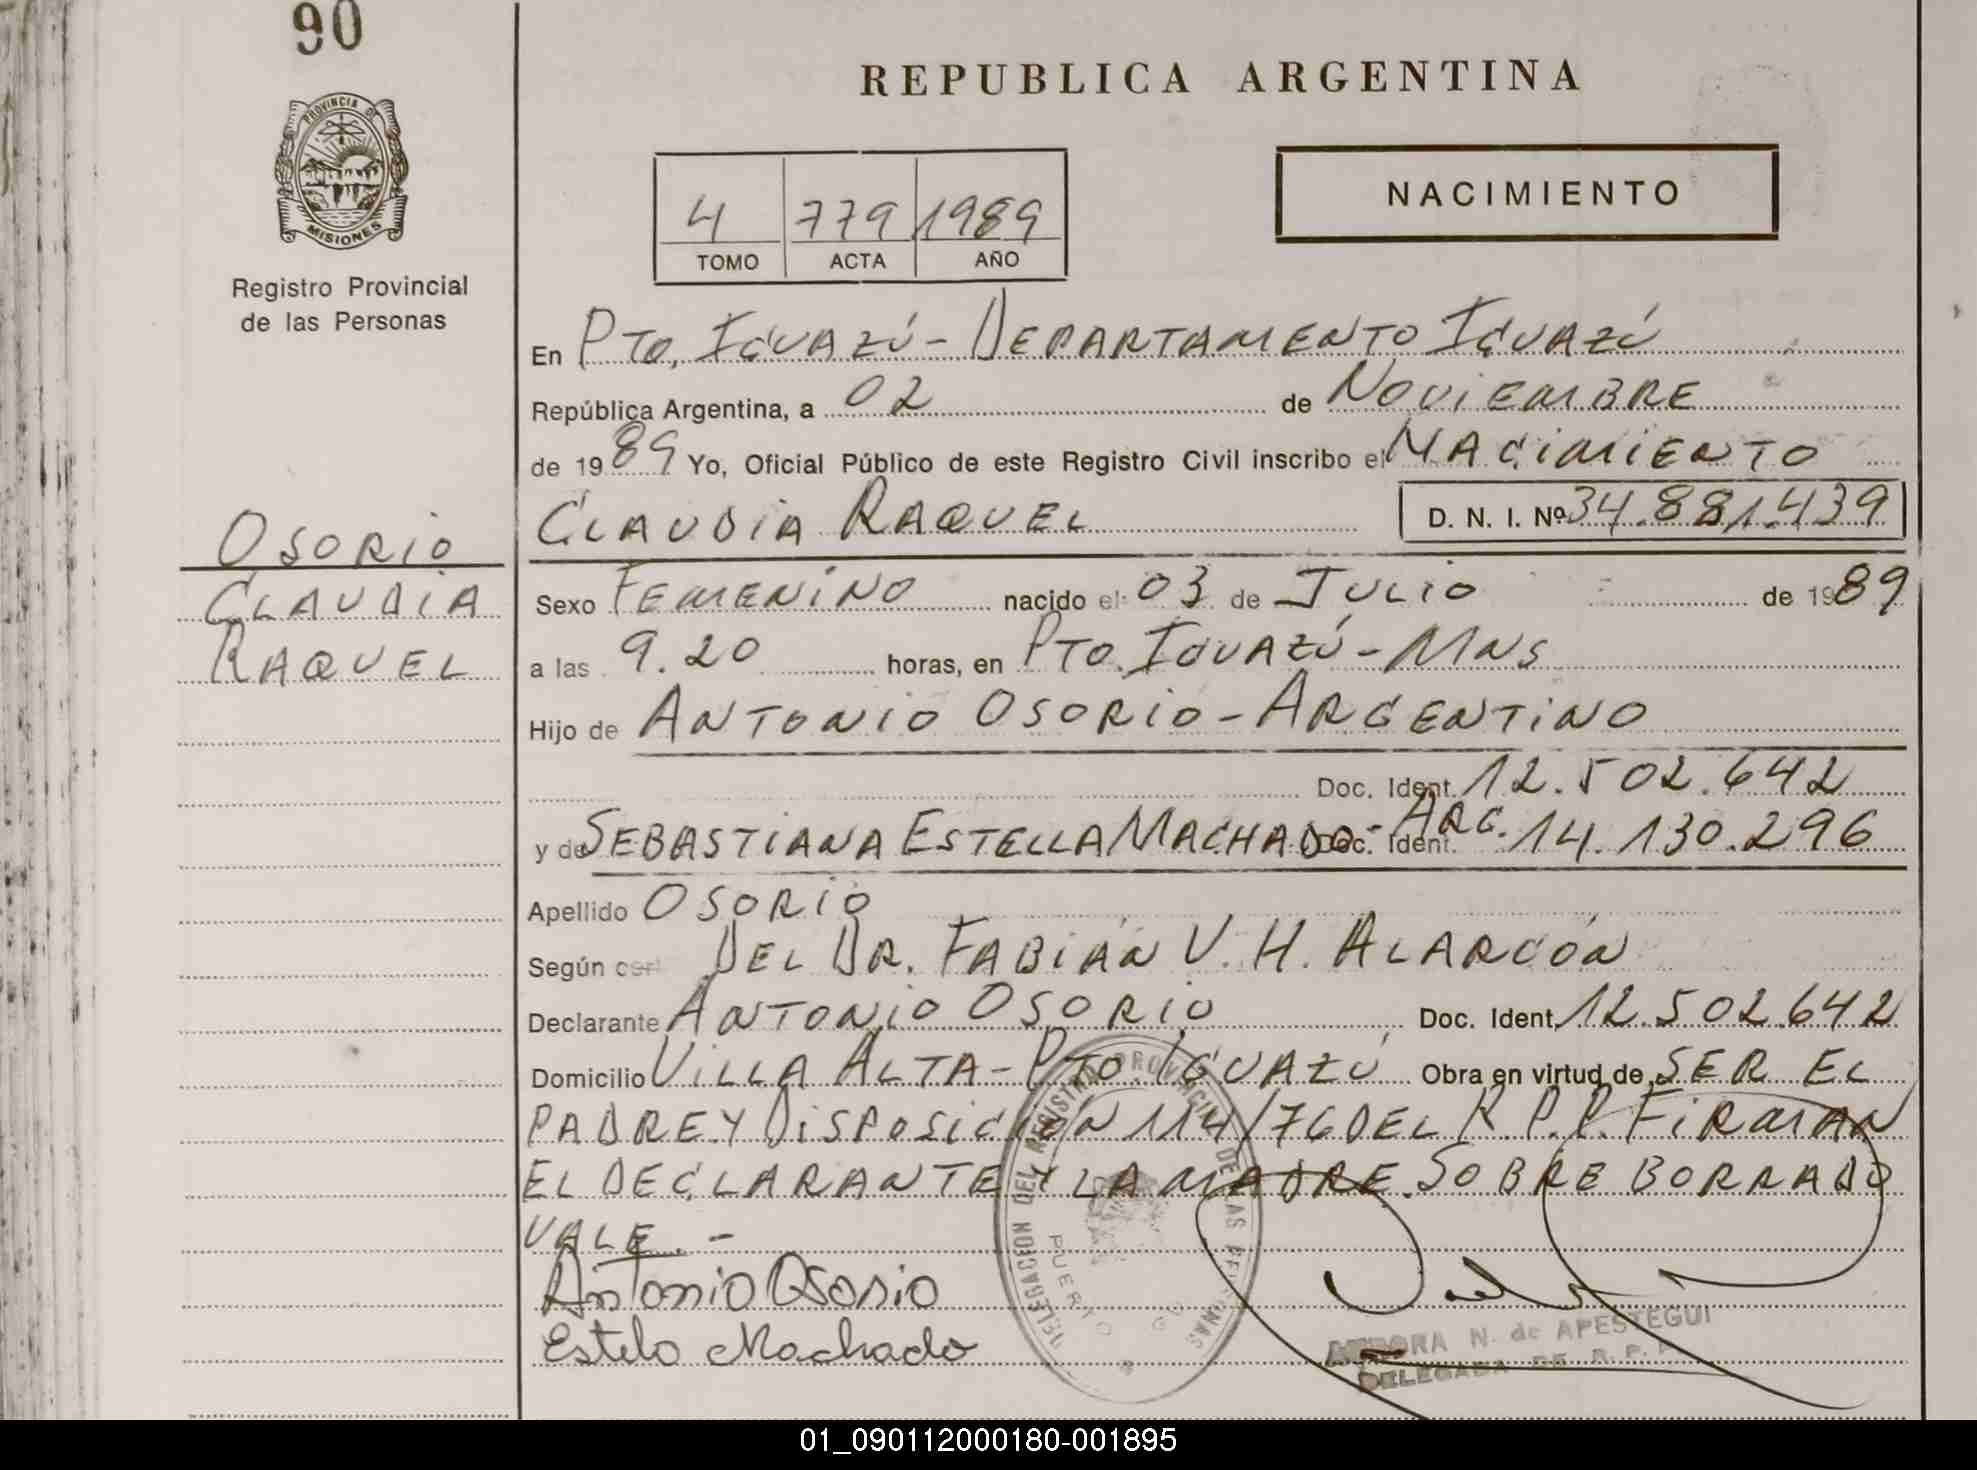 90
PROVINCIA DE
MISIONES
Registro Provincial
de las Personas
OSORIO
CLAUDIA
RAQUEL
REPUBLICA ARGENTINA
4 779 1989
TOMO ACTA AÑO
NACIMIENTO
En PTO, IGUAZÚ - DEPARTAMENTO IGUAZÚ
República Argentina, a 02 de NOVIEMBRE
de 1989 Yo, Oficial Público de este Registro Civil inscribo el NACIMIENTO
CLAUDIA RAQUEL D. N. I. Nº 34.881.439
Sexo FEMENINO nacido el 03 de JULIO de 1989
a las 9.20 horas, en PTO. IGUAZÚ - MNS
Hijo de ANTONIO OSORIO - ARGENTINO
Doc. Ident. 12.502.642
y de SEBASTIANA ESTELLA MACHADO - ARG. Doc. Ident. 14.130.296
Apellido OSORIO
Según cert DEL DR. FABIÁN V. H. ALARCÓN
Declarante ANTONIO OSORIO Doc. Ident. 12.502.642
Domicilio VILLA ALTA - PTO. IGUAZÚ Obra en virtud de SER EL
PADRE Y DISPOSICIÓN 114/76 DEL R.P.P. FIRMAN
EL DECLARANTE Y LA MADRE. SOBRE BORRADO
VALE. -
Antonio Osorio
Estela Machado
DELEGACION DEL REGISTRO PROVINCIAL DE LAS PERSONAS
PUERTO
AURORA N. de APESTEGUI
DELEGADA DE R. P. P.
01_090112000180-001895